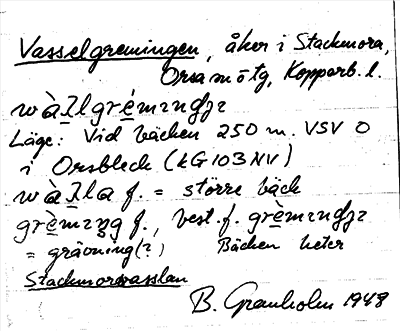 Vasselgremingen, åker i Stackmora,
Orsa mötg, Kopparb. l.
wàllgrèmıngȷz
Läge: Vid bäcken 250 m. VSV O
i Orsbleck (kG103NV)
wàlla f. = större bäck
grèmıng f., best. f. grèmıngȷz
= grävning(?) Bäcken heter
Stackmorvasslan
B. Granholm 1948